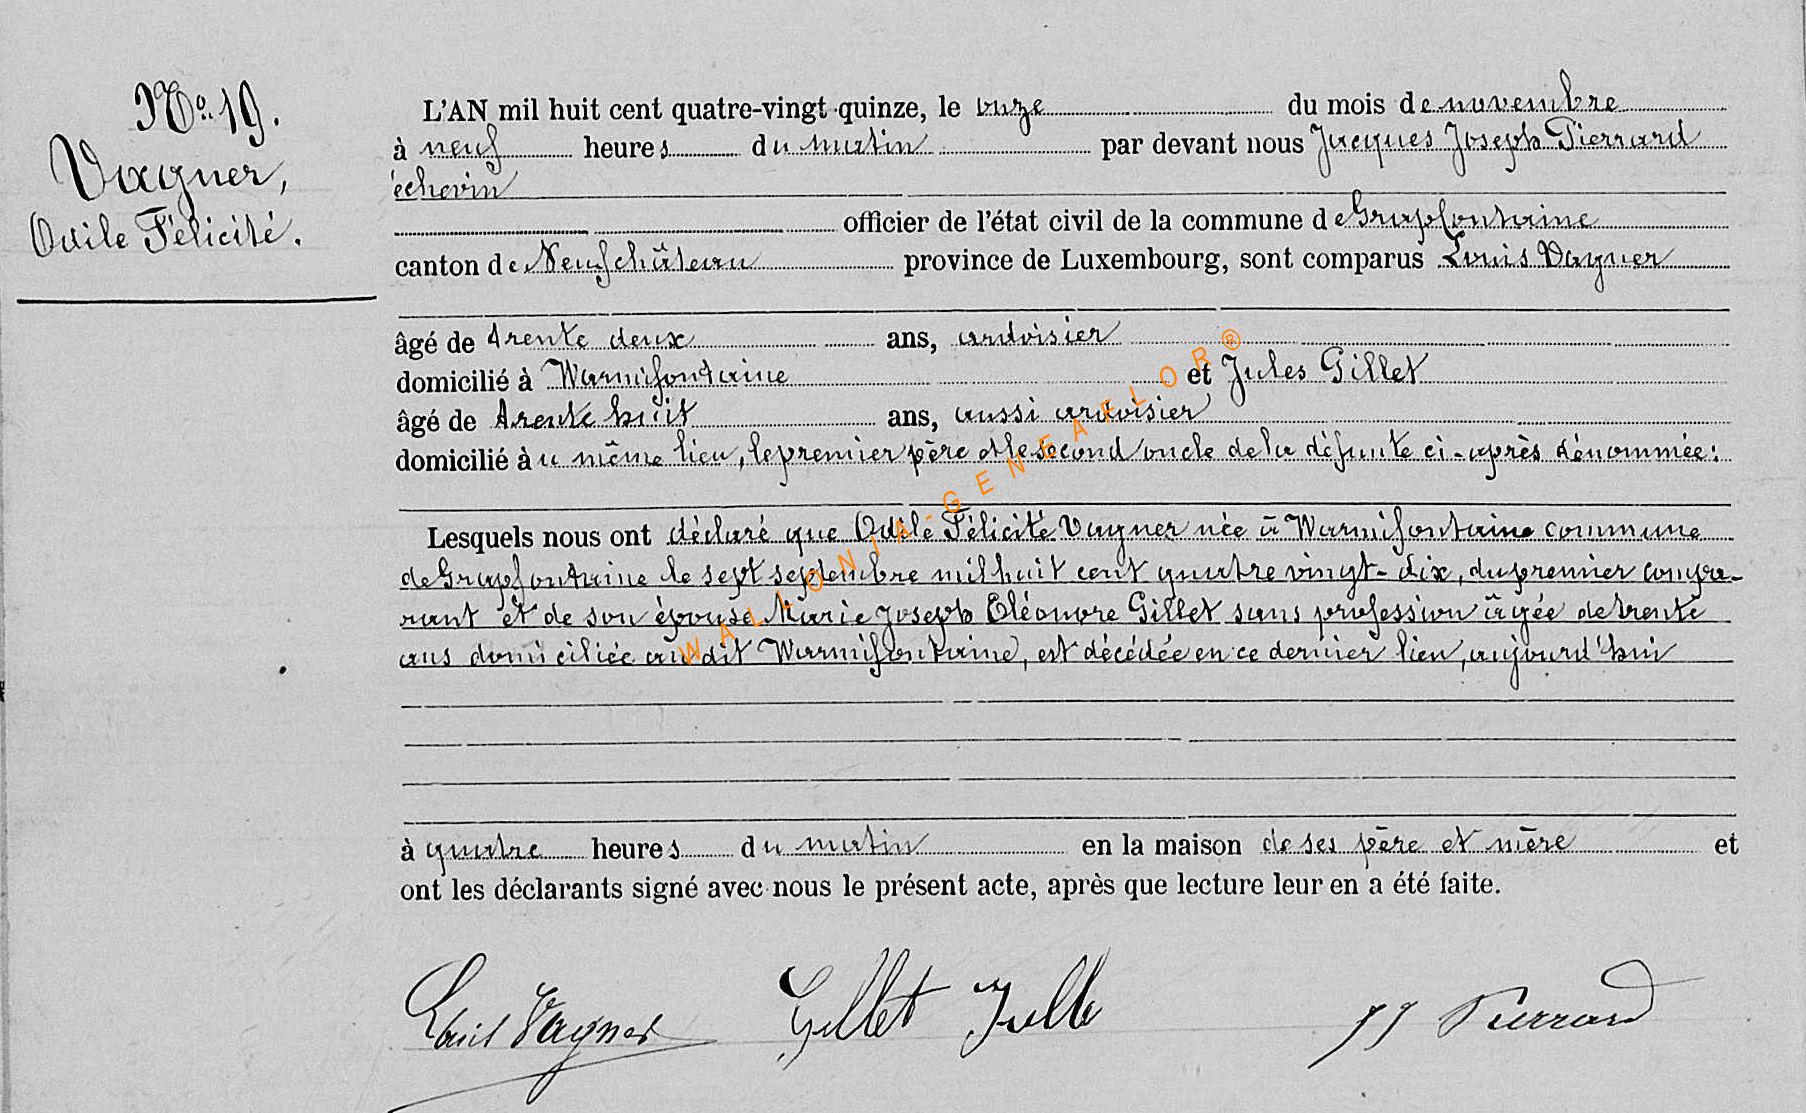 No. 19.
Vagner,
Odile Félicité.
L'AN mil huit cent quatre-vingt-quinze, le onze du mois de novembre
à neuf heures du matin par devant nous Jacques Joseph Pierrard
échevin
officier de l'état civil de la commune de Grapfontaine
canton de Neufchâteau province de Luxembourg, sont comparus Louis Vagner
âgé de trente deux ans, ardoisier
domicilié à Warmifontaine et Jules Gillet
âgé de trente huit ans, aussi ardoisier
domicilié au même lieu, le premier père et le second oncle de la défunte ci-après dénommée:
Lesquels nous ont déclaré que Odile Félicité Vagner née à Warmifontaine commune
de Grapfontaine le sept septembre mil huit cent quatre vingt-dix, du premier compa-
rant et de son épouse Marie Joseph Eléonore Gillet sans profession âgée de trente
ans domiciliée au dit Warmifontaine, est décédée en ce dernier lieu, aujourd'hui
à quatre heures du matin en la maison de ses père et mère et
ont les déclarants signé avec nous le présent acte, après que lecture leur en a été faite.
Louis Vagner Gillet Julle JJ Pierrard
WALLONIA-GENEAFLOR®